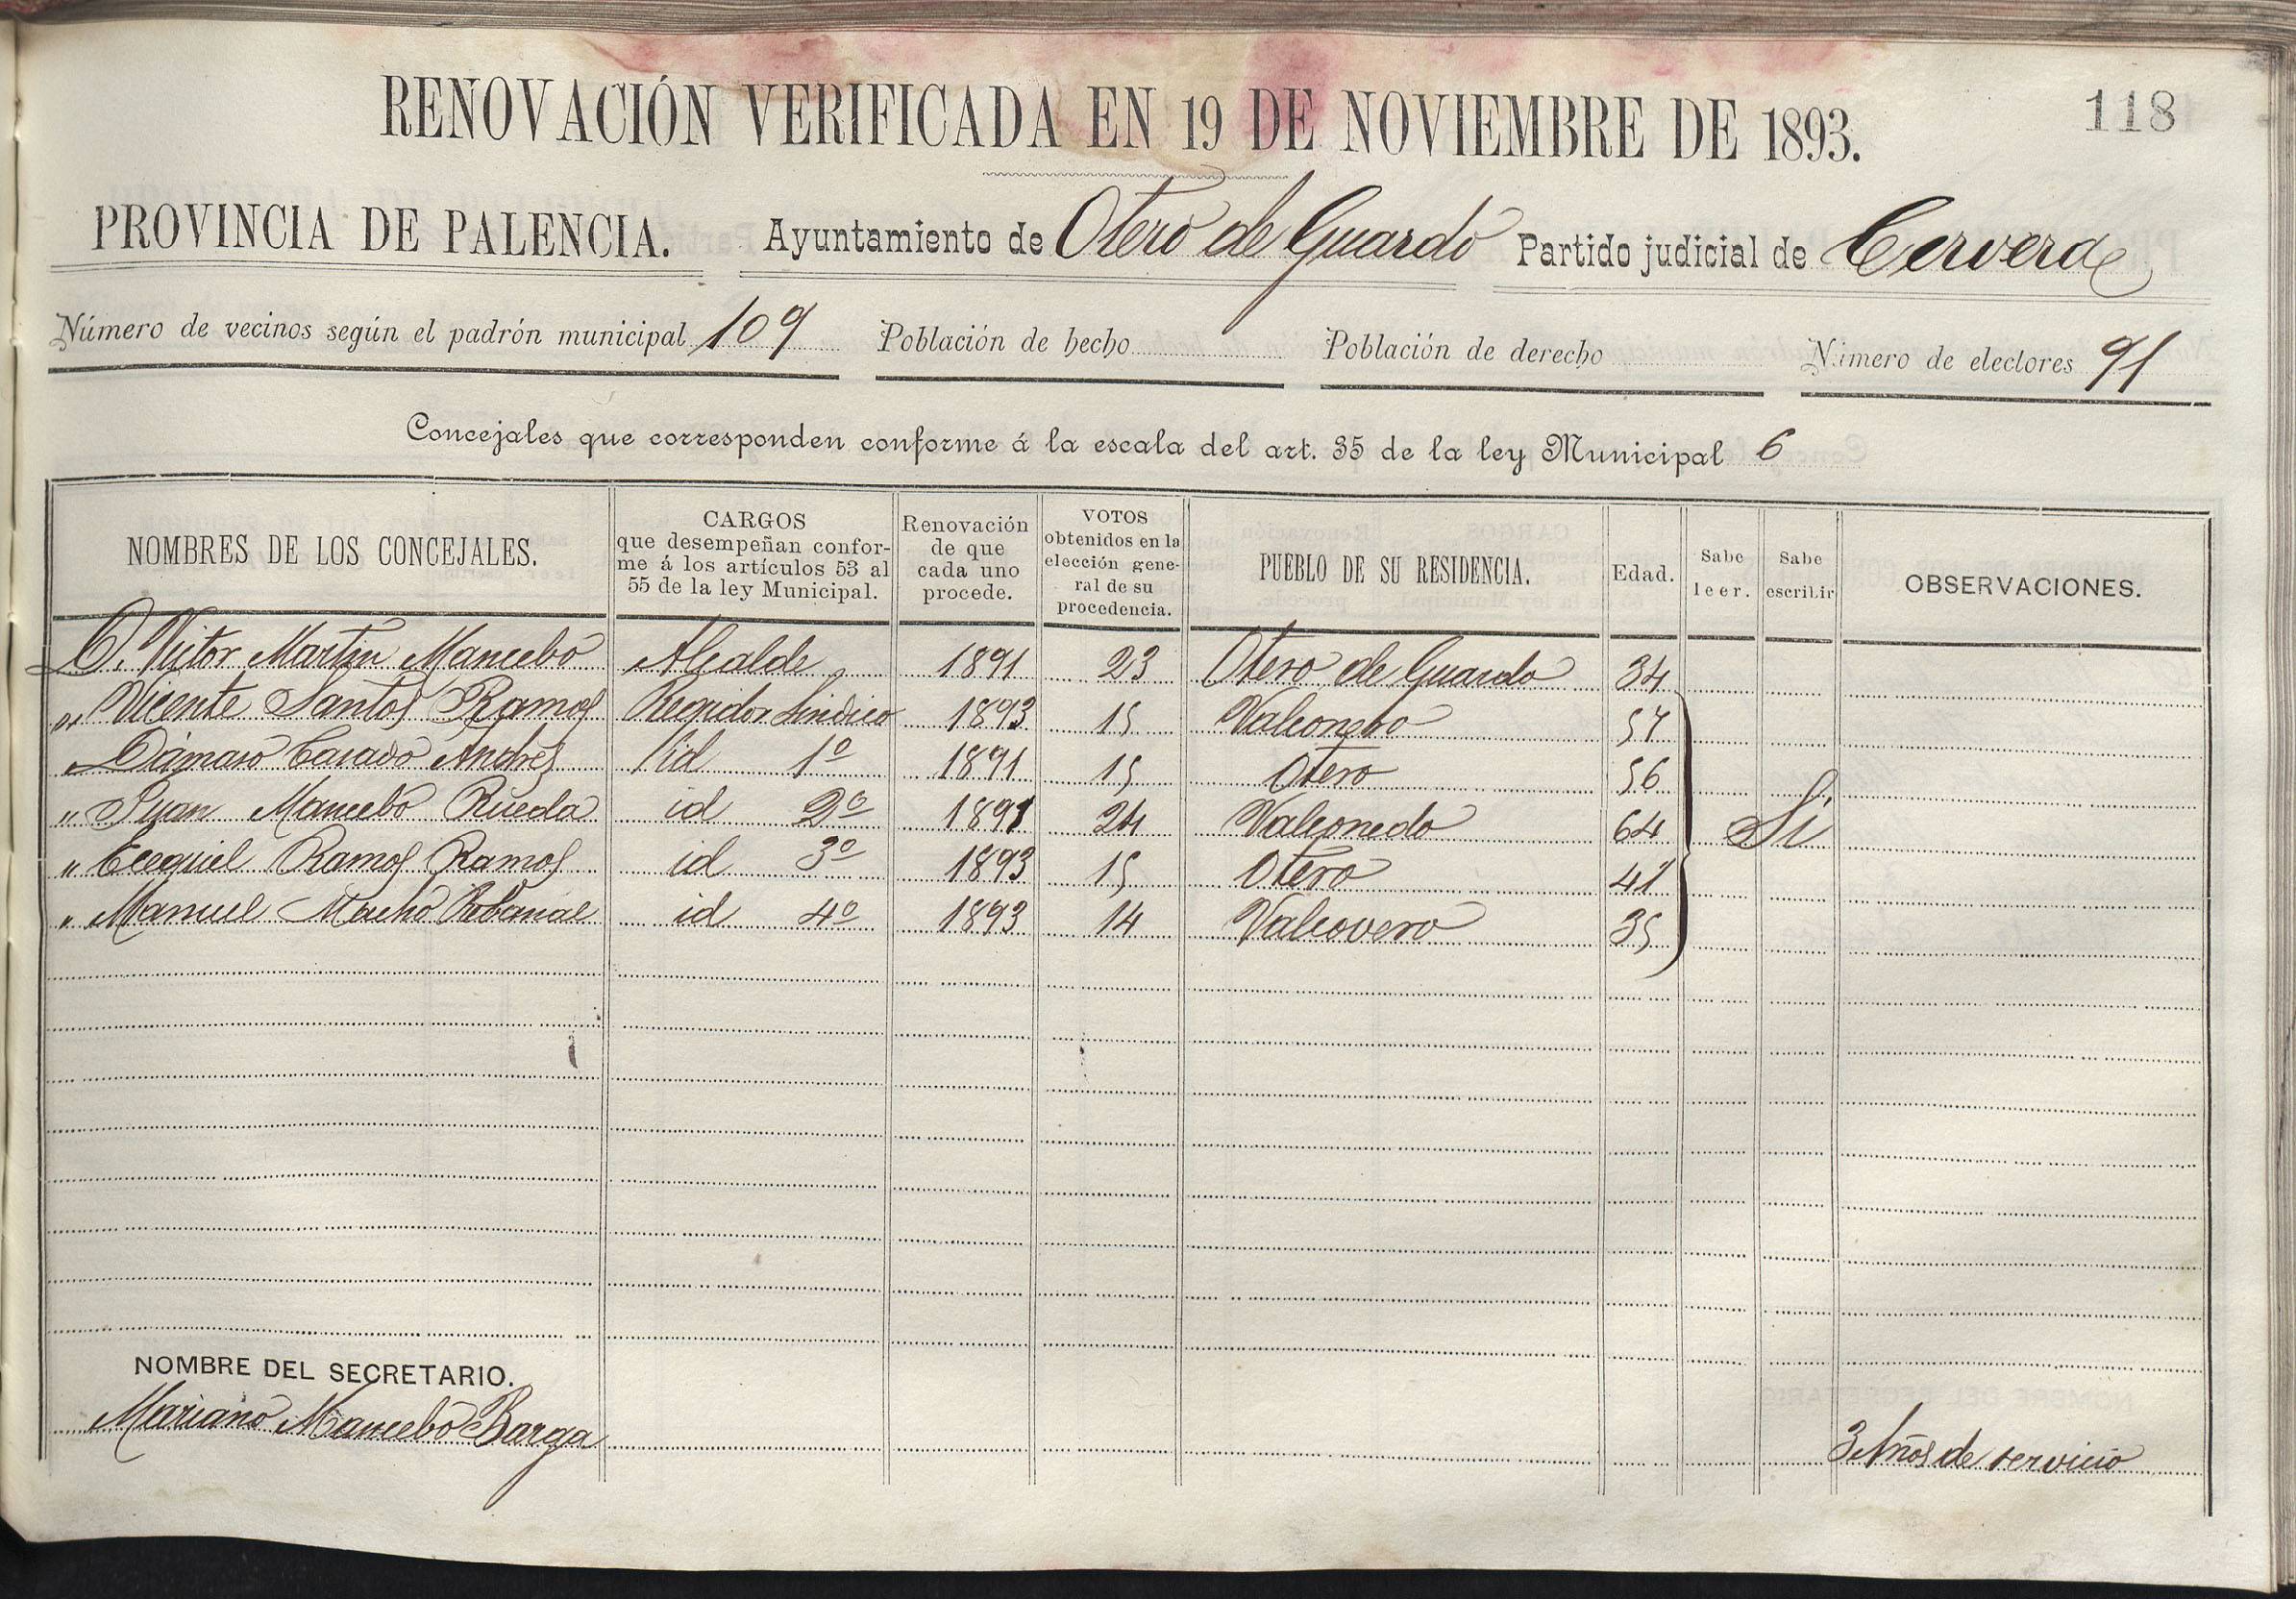 118
RENOVACIÓN VERIFICADA EN 19 DE NOVIEMBRE DE 1893.
PROVINCIA DE PALENCIA. Ayuntamiento de Otero de Guardo Partido judicial de Cervera
Número de vecinos según el padrón municipal 109 Población de hecho Población de derecho Número de electores 91
Concejales que corresponden conforme á la escala del art. 35 de la ley Municipal 6
NOMBRES DE LOS CONCEJALES. CARGOS que desempeñan confor-me á los artículos 53 al 55 de la ley Municipal. Renovación de que cada uno procede. VOTOS obtenidos en la elección gene-ral de su procedencia. PUEBLO DE SU RESIDENCIA. Edad. Sabe leer. Sabe escribir OBSERVACIONES.
D. Victor Martin Mancebo Alcalde 1891 23 Otero de Guardo 34
" Vicente Santos Ramos Regidor Sindico 1893 15 57
" Dámaso Casado Andrés id 1º 1891 15 Otero 56
" Juan Mancebo Rueda id 2º 1891 24 64 Si
" Ecequiel Ramos Ramos id 3º 1893 15 Otero 41
" Manuel Macho Rebanal id 4º 1893 14 Valcovero 35
NOMBRE DEL SECRETARIO.
Mariano Mancebo Barga 3 Años de servicio